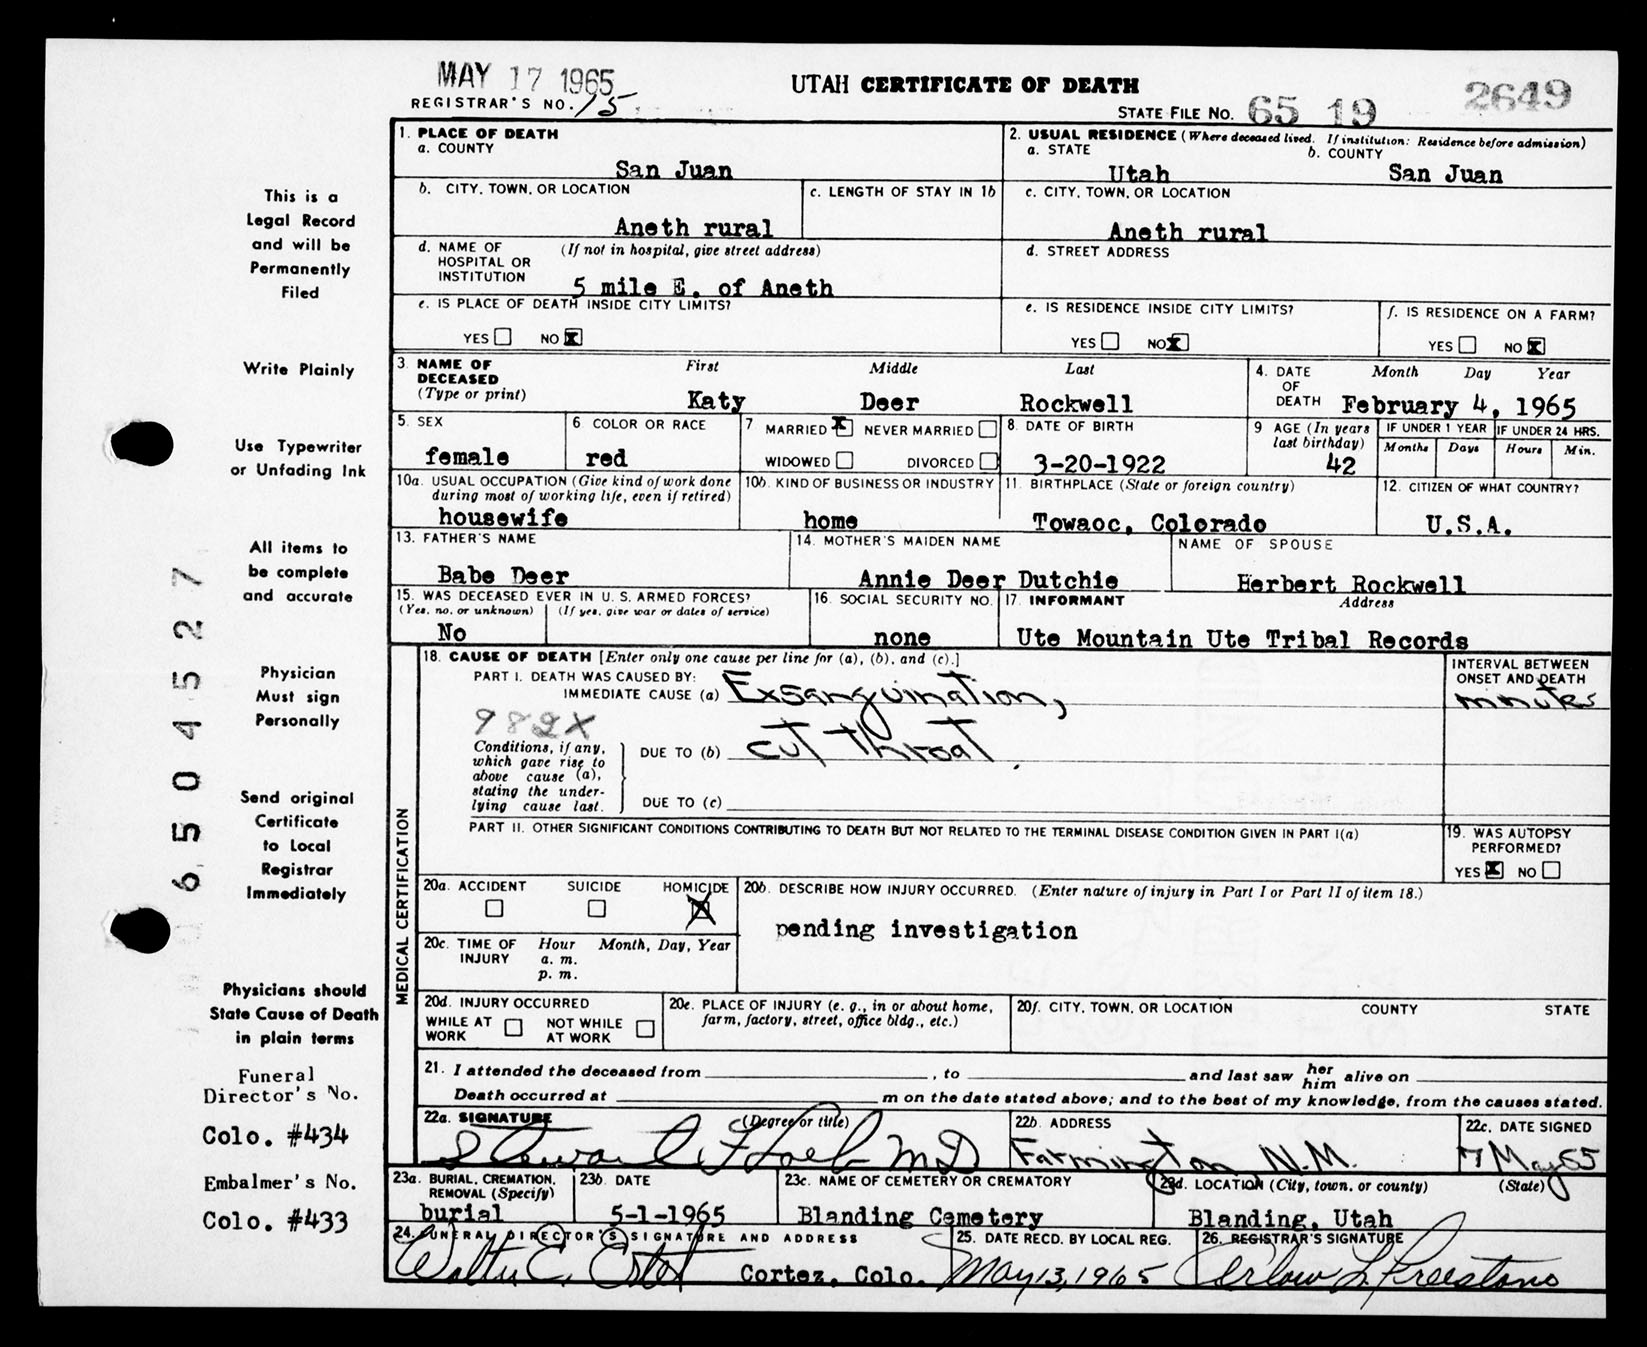 MAY 17 1965
UTAH CERTIFICATE OF DEATH
2649
REGISTRAR'S NO. 15
STATE FILE NO. 65 19
This is a
Legal Record
and will be
Permanently
Filed
Write Plainly
Use Typewriter
or Unfading Ink
All items to
be complete
and accurate
Physician
Must sign
Personally
Send original
Certificate
to Local
Registrar
Immediately
Physicians should
State Cause of Death
in plain terms
Funeral
Director's No.
Colo. #434
Embalmer's No.
Colo. #433
650 4527
1. PLACE OF DEATH
a. COUNTY
San Juan
2. USUAL RESIDENCE (Where deceased lived. If institution: Residence before admission)
a. STATE
Utah
b. COUNTY
San Juan
b. CITY, TOWN, OR LOCATION
Aneth rural
c. LENGTH OF STAY IN 1b
c. CITY, TOWN, OR LOCATION
Aneth rural
d. NAME OF HOSPITAL OR INSTITUTION
(If not in hospital, give street address)
5 mile E. of Aneth
d. STREET ADDRESS
e. IS PLACE OF DEATH INSIDE CITY LIMITS?
YES NO X
e. IS RESIDENCE INSIDE CITY LIMITS?
YES NO X
f. IS RESIDENCE ON A FARM?
YES NO X
3. NAME OF DECEASED
(Type or print)
First Middle Last
Katy Deer Rockwell
4. DATE OF DEATH
Month Day Year
February 4, 1965
5. SEX
female
6 COLOR OR RACE
red
7 MARRIED X NEVER MARRIED
WIDOWED DIVORCED
8. DATE OF BIRTH
3-20-1922
9 AGE (In years last birthday)
42
IF UNDER 1 YEAR
Months Days
IF UNDER 24 HRS.
Hours Min.
10a. USUAL OCCUPATION (Give kind of work done during most of working life, even if retired)
housewife
10b. KIND OF BUSINESS OR INDUSTRY
home
11. BIRTHPLACE (State or foreign country)
Towaoc, Colorado
12. CITIZEN OF WHAT COUNTRY?
U.S.A.
13. FATHER'S NAME
Babe Deer
14. MOTHER'S MAIDEN NAME
Annie Deer Dutchie
NAME OF SPOUSE
Herbert Rockwell
15. WAS DECEASED EVER IN U. S. ARMED FORCES?
(Yes, no, or unknown) (If yes, give war or dates of service)
No
16. SOCIAL SECURITY NO.
none
17. INFORMANT
Address
Ute Mountain Ute Tribal Records
MEDICAL CERTIFICATION
18. CAUSE OF DEATH [Enter only one cause per line for (a), (b), and (c).]
PART I. DEATH WAS CAUSED BY:
IMMEDIATE CAUSE (a) Exsanguination,
INTERVAL BETWEEN ONSET AND DEATH
minutes
982X
Conditions, if any, which gave rise to above cause (a), stating the underlying cause last.
DUE TO (b) cut throat
DUE TO (c)
PART II. OTHER SIGNIFICANT CONDITIONS CONTRIBUTING TO DEATH BUT NOT RELATED TO THE TERMINAL DISEASE CONDITION GIVEN IN PART I(a)
19. WAS AUTOPSY PERFORMED?
YES X NO
20a. ACCIDENT SUICIDE HOMICIDE X
20b. DESCRIBE HOW INJURY OCCURRED. (Enter nature of injury in Part I or Part II of item 18.)
pending investigation
20c. TIME OF INJURY
Hour Month, Day, Year
a. m.
p. m.
20d. INJURY OCCURRED
WHILE AT WORK NOT WHILE AT WORK
20e. PLACE OF INJURY (e. g., in or about home, farm, factory, street, office bldg., etc.)
20f. CITY, TOWN, OR LOCATION COUNTY STATE
21. I attended the deceased from , to and last saw her him alive on
Death occurred at m on the date stated above; and to the best of my knowledge, from the causes stated.
22a. SIGNATURE (Degree or title)
Stewart MD
22b. ADDRESS
Farmington, N.M.
22c. DATE SIGNED
7 May 65
23a. BURIAL, CREMATION, REMOVAL (Specify)
burial
23b. DATE
5-1-1965
23c. NAME OF CEMETERY OR CREMATORY
Blanding Cemetery
23d. LOCATION (City, town, or county) (State)
Blanding, Utah
24. FUNERAL DIRECTOR'S SIGNATURE AND ADDRESS
Walter E. Cortez, Colo.
25. DATE RECD. BY LOCAL REG.
May 13, 1965
26. REGISTRAR'S SIGNATURE
L. Freestone